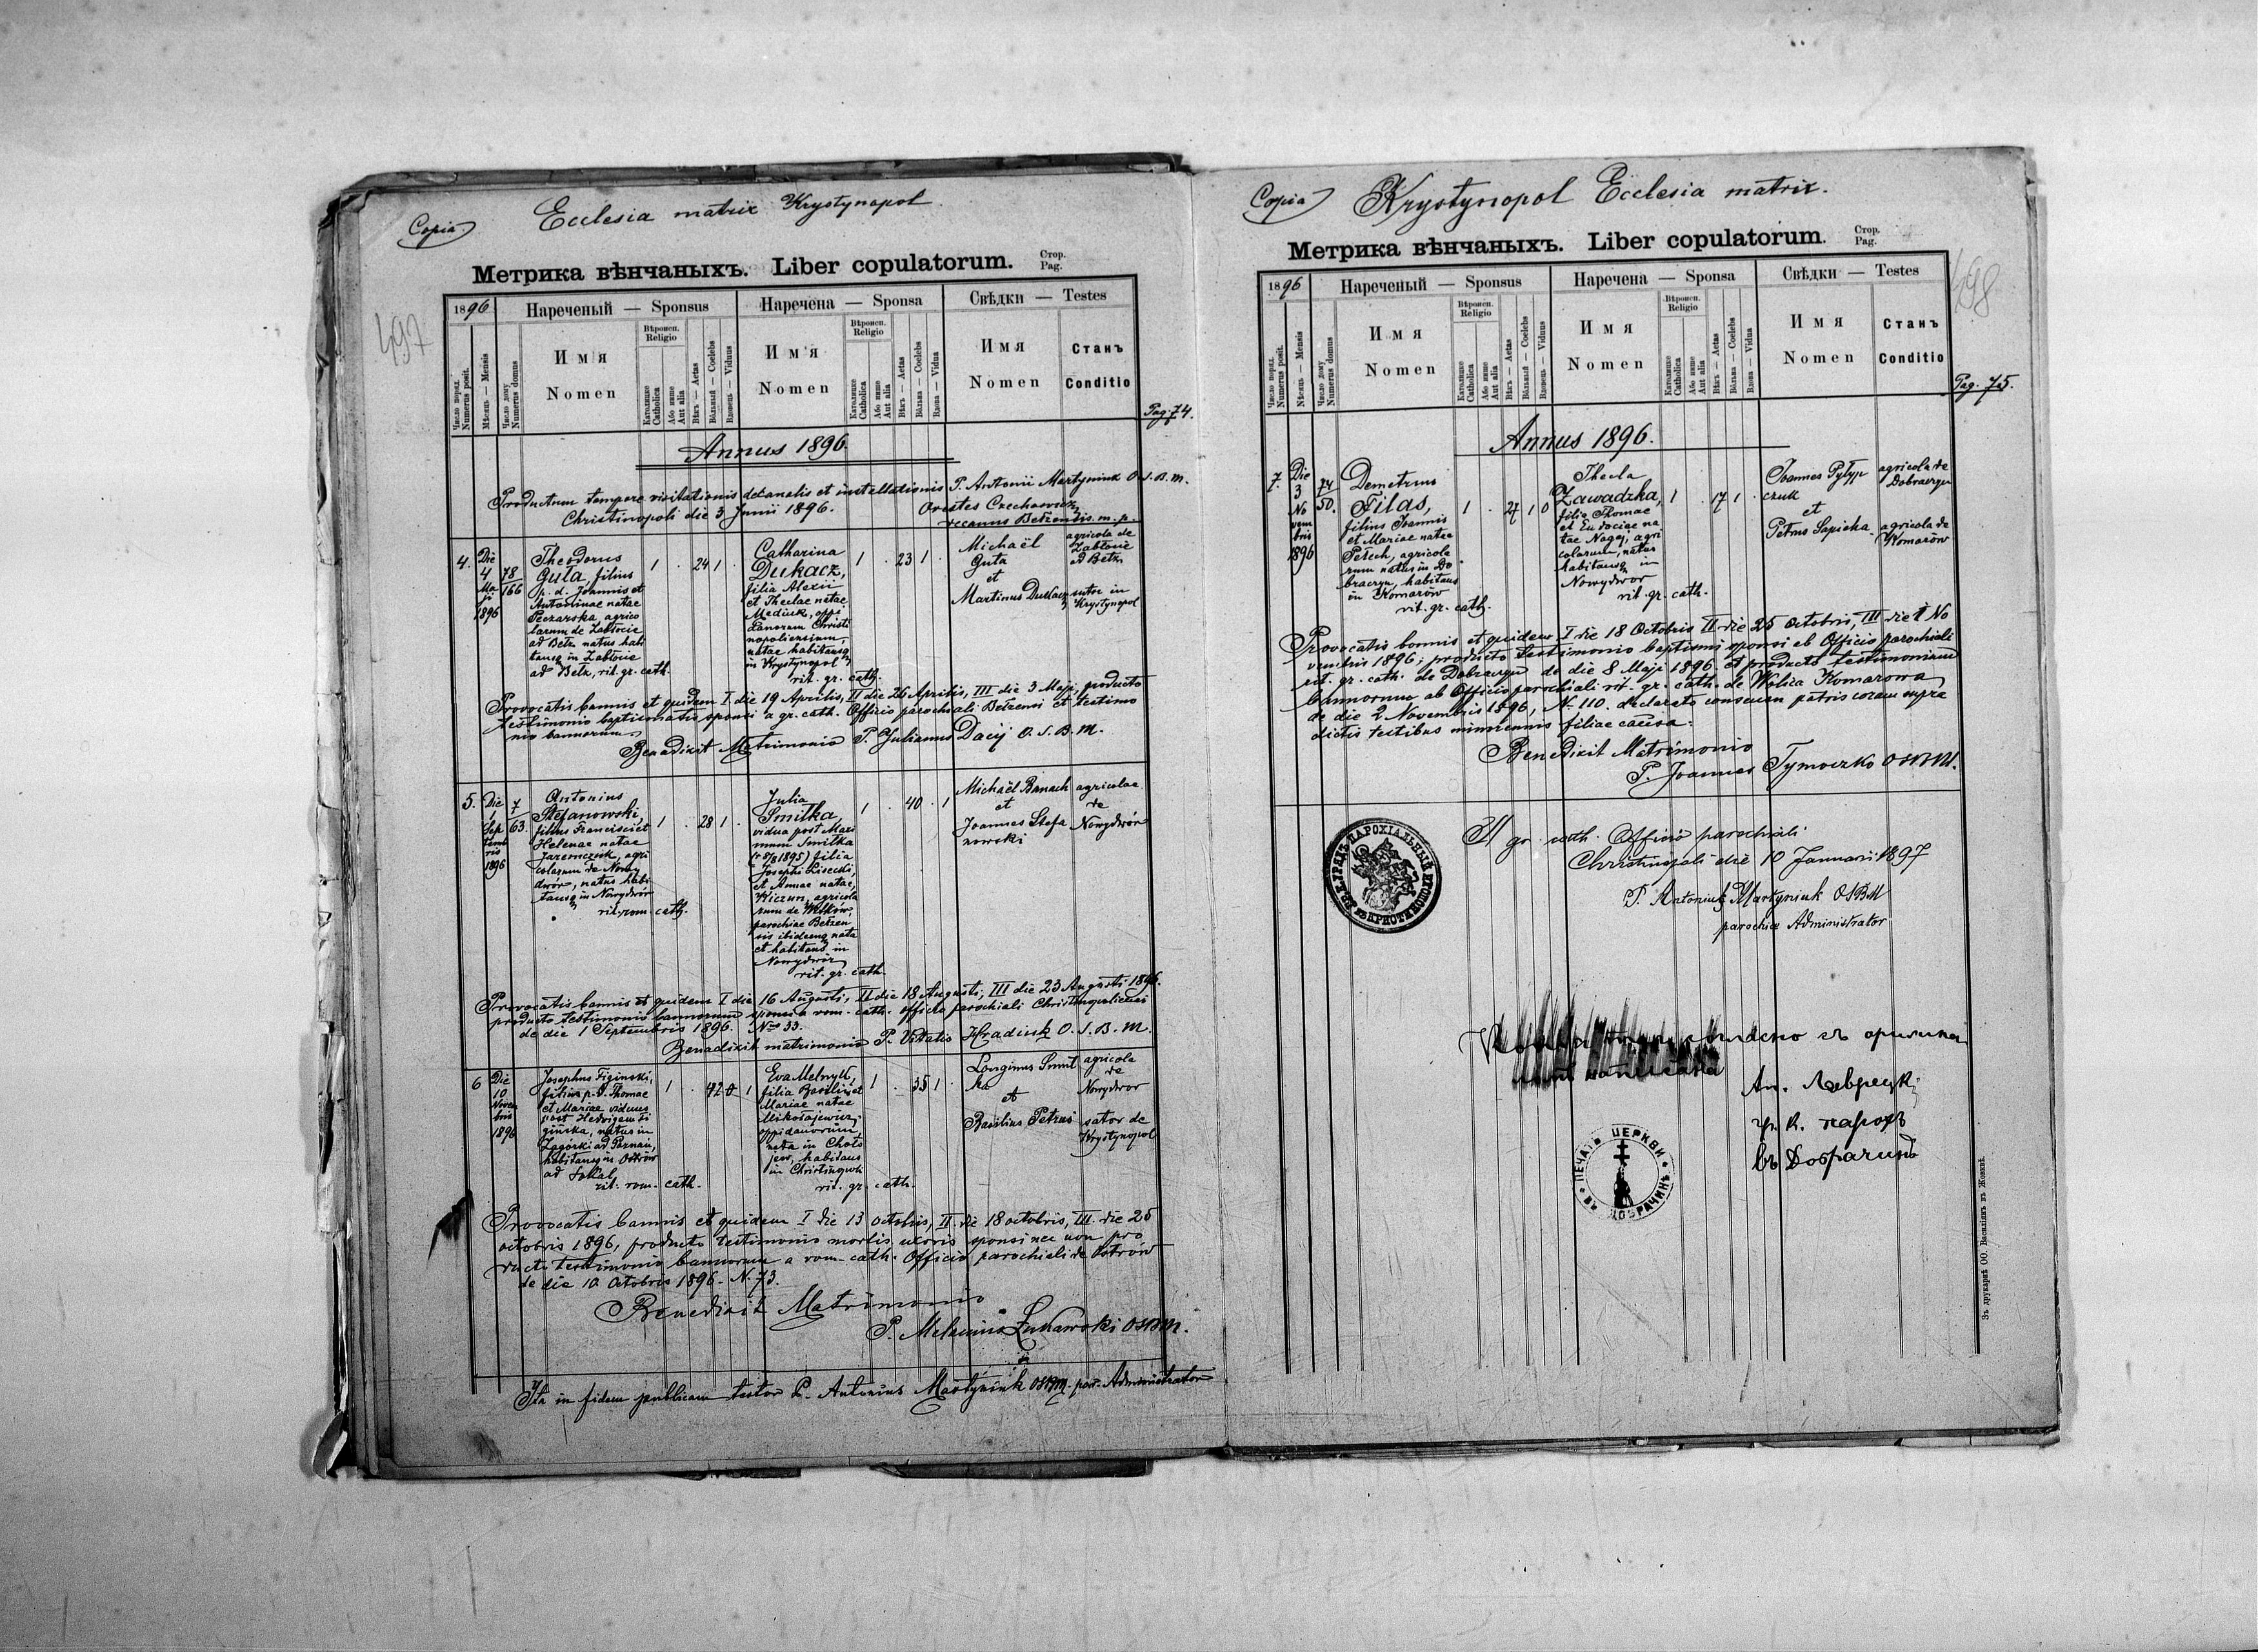 Copia
Ecclesia matrix Krystynopol
Метрика вѣнчаныхъ. Liber copulatorum. Стор. Pag.
497
1896 Нареченый — Sponsus Наречена — Sponsa Свѣдки — Testes
Число поряд. Numerus posit.
Мѣсяць — Mensis
Число дому Numerus domus
Имя Nomen
Вѣроисп. Religio
Католицке Catholica
Або инше Aut alia
Вѣкъ — Aetas
Вôльный — Coelebs
Вдовець — Viduus
Имя Nomen
Вѣроисп. Religio
Католицке Catholica
Або инше Aut alia
Вѣкъ — Aetas
Вôльна — Coelebs
Вдова — Vidua
Имя Nomen
Станъ Conditio
Pag. 74.
Annus 1896.
Productum tempore visitationis decanalis et installationis P. Antonii Martyniuk O.S.B.M.
Christinopoli die 3 Junii 1896. Orestes Czechowicz,
decanus Bełzensis m. p.
4.
Die
4
Ma
ji
1896
78
166
Theodorus
Guła, filius
p. d. Joannis et
Antoninae natae
Peczarska agrico
larum de Zabłocie
ad Bełz natus habi
tansq in Zabłocie
ad Bełz, rit. gr. cath.
1 . 24 1 .
Catharina
Dukacz,
filia Alexii
et Theclae natae
Mediuk, oppi
danorum Christi
nopoliensium,
natae habitansq
in Krystynopol
rit. gr. cath.
1 . 23 1 .
Michaël
Guła
et
Martinus Dukacz
agricola de
Zabłocie
ad Bełz
sutor in
Krystynopol
Provocatis bannis et quidem I. die 19 Aprilis, II die 26 Aprilis, III die 3 Maji, producto
testimonio baptismatis sponsi a gr. cath. Officio parochiali Bełzensi et testimo
nio bannorum
Benedixit Matrimonio P. Julianus Dacij O. S. B. M.
5.
Die
1
Sep
temb
ris
1896
7
63.
Antonius
Stefanowski,
filius Francisci et
Helenae natae
Jaremczuk, agri
colarum de Nowy
dwór, natus habi
tansq in Nowydwór
rit. rom. cath.
1 . 28 1 .
Julia
Smitka,
vidua post Maxi
mum Smitka
filia
Josephi Lisecki,
et Annae natae,
Kiczun, agricola
rum de Witków,
parochiae Bełzen
sis ibidemq nata
et habitans in
Nowydwór
rit. gr. cath.
1 . 40 . 1
Michaël Banach
et
Joannes Stefa
nowski
agricolae
de
Nowydwór
Provocatis bannis et quidem I die 16 Augusti, II die 18 Augusti, III die 23 Augusti 1896.
producto testimonio bannorum sponsi a rom. cath. officio parochiali Christinopoliensi
de die 1 Septembris 1896. Nro 33.
Benedixit matrimonio P. Vitalis Hradiuk O. S. B. M.
6
Die
10
Novem
bris
1896
Josephus Figinski,
filius p. d. Thomae
et Mariae viduus
post Hedvigem Fi
gińska, natus in
Zagórki ad Poznań,
habitansq in Ostrów
ad Sokal
rit. rom. cath.
1 . 42 0 1
Eva Melnyk,
filia Basilii et
Mariae natae
Mikołajewicz,
oppidanorum,
nata in Choło
jew, habitans
in Christinopoli
rit. gr. cath.
1 . 35 1 .
Longinus Smit
ka
et
Basilius Petruś
agricola
de
Nowydwor
sator de
Krystynopol
Provocatis bannis et quidem I die 13 octobris, II. die 18 octobris, III. die 25
octobris 1896, producto testimonio mortis uxoris sponsi nec non pro
ducto testimonio bannorum a rom. cath. Officio parochiali de Ostrów
de die 10 Octobris 1896. N. 73.
Benedixit Matrimonio
P. Łukawski OSBM.
Ita in fidem publicam testor P. Antonius Martyniuk OSBM. par. Administrator
Copia
Krystynopol Ecclesia matrix.
Метрика вѣнчаныхъ. Liber copulatorum. Стор. Pag.
498
1896 Нареченый — Sponsus Наречена — Sponsa Свѣдки — Testes
Число поряд. Numerus posit.
Мѣсяць — Mensis
Число дому Numerus domus
Имя Nomen
Вѣроисп. Religio
Католицке Catholica
Або инше Aut alia
Вѣкъ — Aetas
Вôльный — Coelebs
Вдовець — Viduus
Имя Nomen
Вѣроисп. Religio
Католицке Catholica
Або инше Aut alia
Вѣкъ — Aetas
Вôльна — Coelebs
Вдова — Vidua
Имя Nomen
Станъ Conditio
Pag. 75.
Annus 1896.
7.
Die
3
No
vem
bris
1896
74
50.
Demetrius
Filas,
filius Joannis
et Mariae natae
Petech, agricola
rum natus in Do
braczyn, habitans
in Komarów
rit. gr. cath.
1 . 27 1 0
Thecla
Zawadzka,
filia Thomae
et Eudociae na
tae Nagaj, agri
colarum, natus
habitansq in
Nowydwor
rit. gr. cath.
1 . 17 1 .
Joannes Pyłyp
czuk
et
Petrus Sapieha
agricola de
Dobraczyn
agricola de
Komarów
Provocatis bannis et quidem I die 18 Octobris II die 25 octobris, III die 1 No
vembris 1896; producto testimonio baptismi sponsi ab Officio parochiali
rit. gr. cath. de Dobraczyn de die 8 Maji 1896 et producto testimonium
bannorum ab Officio parochiali rit. gr. cath. de Wolica Komarowa
de die 2 Novembris 1896, N. 110. declarato consensu patris coram supra
dictis testibus minorennis filiae causa.
Benedixit Matrimonio
P. Joannes Tymoczko OSBM.
A gr. cath. Officio parochiali
Christinopoli die 10 Januarii 1897
P. Antonius Martyniuk OSBM
parochiae Administrator
звѣдено съ оригинал
Ан. Лаврецкі
гр. к. парох
въ Добрачинѣ
ПЕЧАТЬ ЦЕРКВИ ВЪ ДОБРАЧИНѢ
Зъ друкарнѣ ОО. Василіянъ въ Жовквѣ.